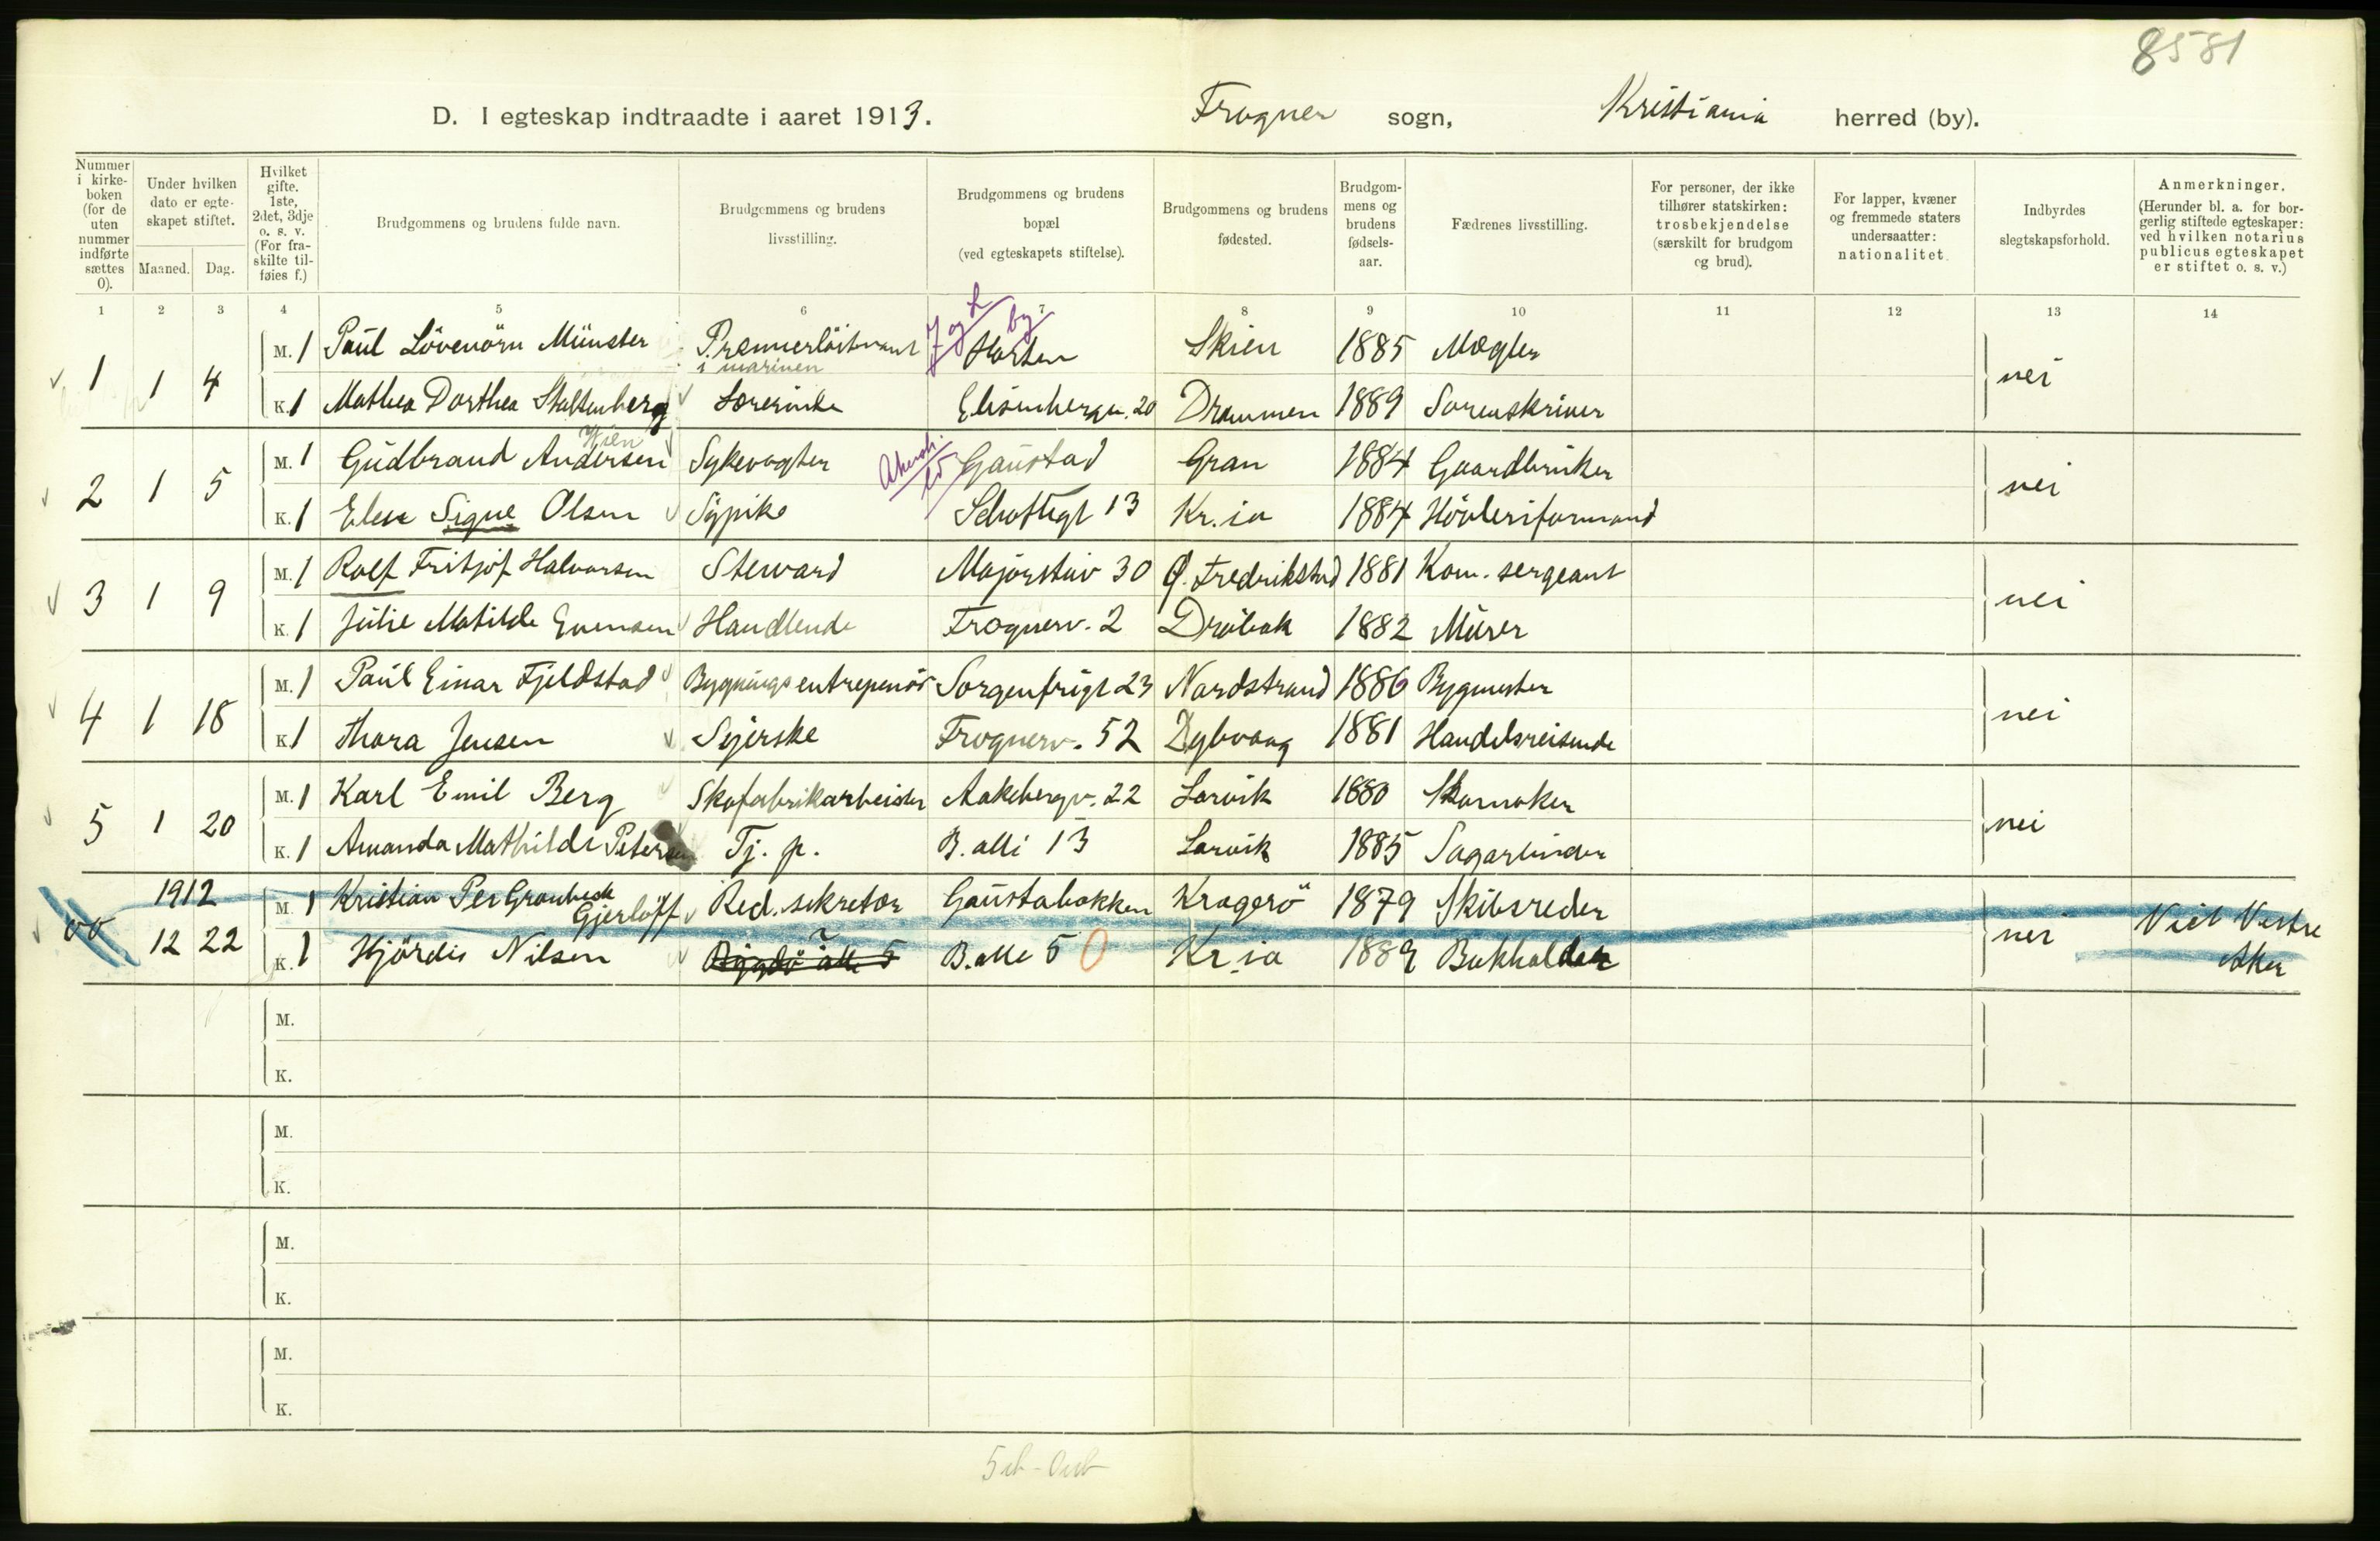 8581
D. I egteskap indtraadte i aaret 1913. Frogner sogn, Kristiania herred (by).
Nummer i kirke-boken (for de uten nummer indførte sættes 0).
Under hvilken dato er egte-skapet stiftet.
Maaned. Dag.
Hvilket gifte. 1ste, 2det, 3dje o. s. v. (For fra-skilte til-føies f.)
Brudgommens og brudens fulde navn.
Brudgommens og brudens livsstilling.
Brudgommens og brudens bopæl (ved egteskapets stiftelse).
Brudgommens og brudens fødested.
Brudgom-mens og brudens fødsels-aar.
Fædrenes livsstilling.
For personer, der ikke tilhører statskirken: trosbekjendelse (særskilt for brudgom og brud).
For lapper, kvæner og fremmede staters undersaatter: nationalitet.
Indbyrdes slegtskapsforhold.
Anmerkninger. (Herunder bl. a. for bor-gerlig stiftede egteskaper: ved hvilken notarius publicus egteskapet er stiftet o. s. v.)
1 2 3 4 5 6 7 8 9 10 11 12 13 14
J og L by
1 1 4 M. 1 Paul Lövenörn Münster Premierlöitnant i marinen Horten Skien 1885 Mægler nei
K. 1 Mathea Dorthea Stoltenberg Lærerinde Elisenbergv. 20 Drammen 1889 Sorenskriver
Wien
2 1 5 M. 1 Gudbrand Andersen Sykevogter Gaustad Gran 1884 Gaardbruker nei
K. 1 Elen Signe Olsen Sypike Schultzgt 13 Kr.ia 1884 Hövleriformand
3 1 9 M. 1 Rolf Fritjof Halvorsen Steward Majorstuv 30 Ø. Fredrikstad 1881 Kom. sergeant nei
K. 1 Julie Matilde Evensen Handlende Frognerv. 2 Dröbak 1882 Murer
4 1 18 M. 1 Paul Einar Fjeldstad Bygningsentrepenör Sorgenfrigt 23 Nordstrand 1886 Bygmester nei
K. 1 Thora Jensen Syerske Frognerv. 52 Dybvaag 1881 Handelsreisende
5 1 20 M. 1 Karl Emil Berg Skofabrikarbeider Aakebergv. 22 Larvik 1880 Skomaker nei
K. 1 Amanda Mathilde Petersen Tj. p. B. alle 13 Larvik 1885 Sagarbeider
00 1912 12 22 M. 1 Kristian Per Grønbeck Gjerløff Red. sekretær Gaustabakken Kragerö 1879 Skibsreder nei Viet Vestre Aker
K. 1 Hjördis Nilsen Bygdö alle 5 B. alle 5 0 Kr.ia 1889 Bokholder
M.
K.
M.
K.
M.
K.
M.
K.